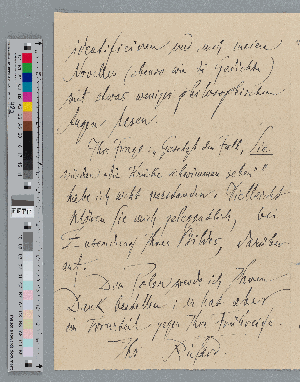 identificieren und mich meine
Novellen (ebenso wie die Gedichte)
mit etwas weniger philosophischen
Augen lesen.
Ihre Frage: Gesetzt den Fall, Sie
würden die schwimmen sehen"
habe ich nicht verstanden. Vielleicht
klären Sie mich gelegentlich, bei
Zusendung Ihres Bildes, darüber
auf.
Den Polen werde ich Ihren
Dank bestellen; er hat aber
ein Vorurteil gegen Ihre
Ihr